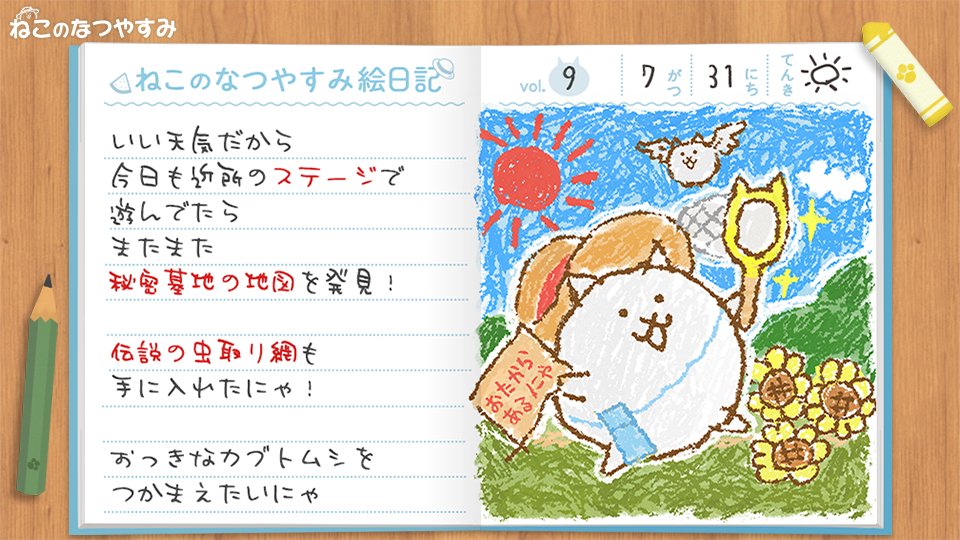 ねこのなつやすみ
ねこのなつやすみ絵日記
vol. 9
7 がつ 31 にち てんき
いい天気だから
今日も近所のステージで
遊んでたら
またまた
秘密基地の地図を発見！
伝説の虫取り網も
手に入れたにゃ！
おっきなカブトムシを
つかまえたいにゃ
おたから
あるにゃ